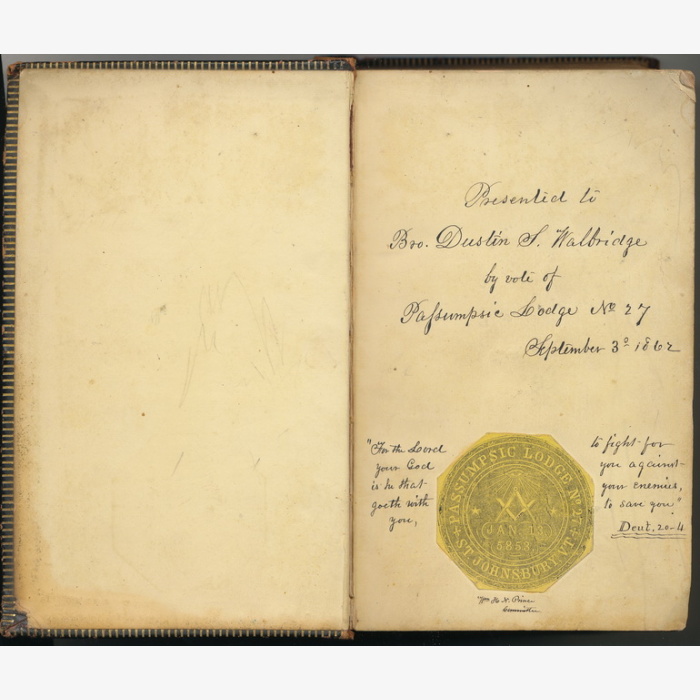 Presented to
Bro. Dustin S. Walbridge
by vote of
Paſsumpsic Lodge No 27
September 3d 1862
"For the Lord
your God
is he that
goeth with
you,
to fight for
you against
your enemies,
to save you"
Deut. 20-4
PASSUMPSIC LODGE No 27.
JAN. 13
5853
ST JOHNSBURY VT.
Committee